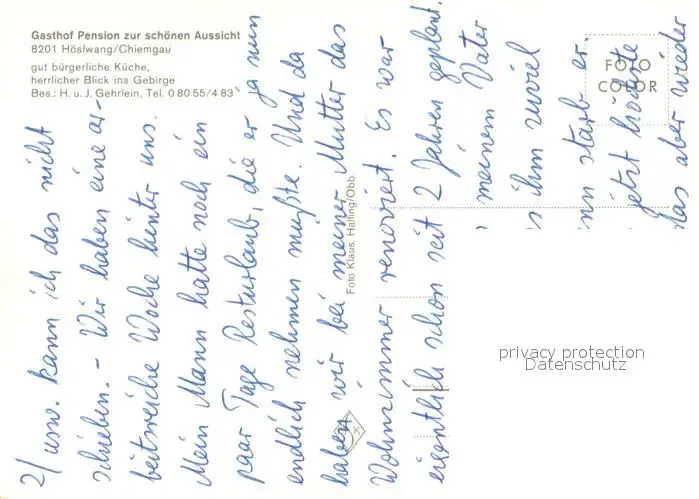 Gasthof Pension zur schönen Aussicht
8201 Höslwang/Chiemgau
gut bürgerliche Küche,
herrlicher Blick ins Gebirge
Bes.: H. u. J. Gehrlein, Tel. 0 80 55/4 83
FOTO
COLOR
Foto Klaus, Halfing/Obb.
2/ usw. kann ich das nicht
schieben. - Wir haben eine ar-
beitsreiche Woche hinter uns.
Mein Mann hatte noch ein
paar Tage Resturlaub, die er ja nun
endlich nehmen mußte. Und da
haben wir bei meiner Mutter das
Wohnzimmer renoviert. Es war
eigentlich schon seit 2 Jahren geplant.
meinem Vater
s ihm zuviel
nn starb er.
jetzt höchste
das aber wieder
privacy protection
Datenschutz